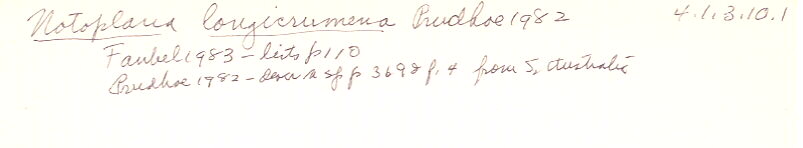 Notoplana longicrumena Prudhoe 1982 4.1.3.10.1
Faubel 1983 - lists p 110
Prudhoe 1982 - descr n sp p 369 & f. 4 from S. Australia